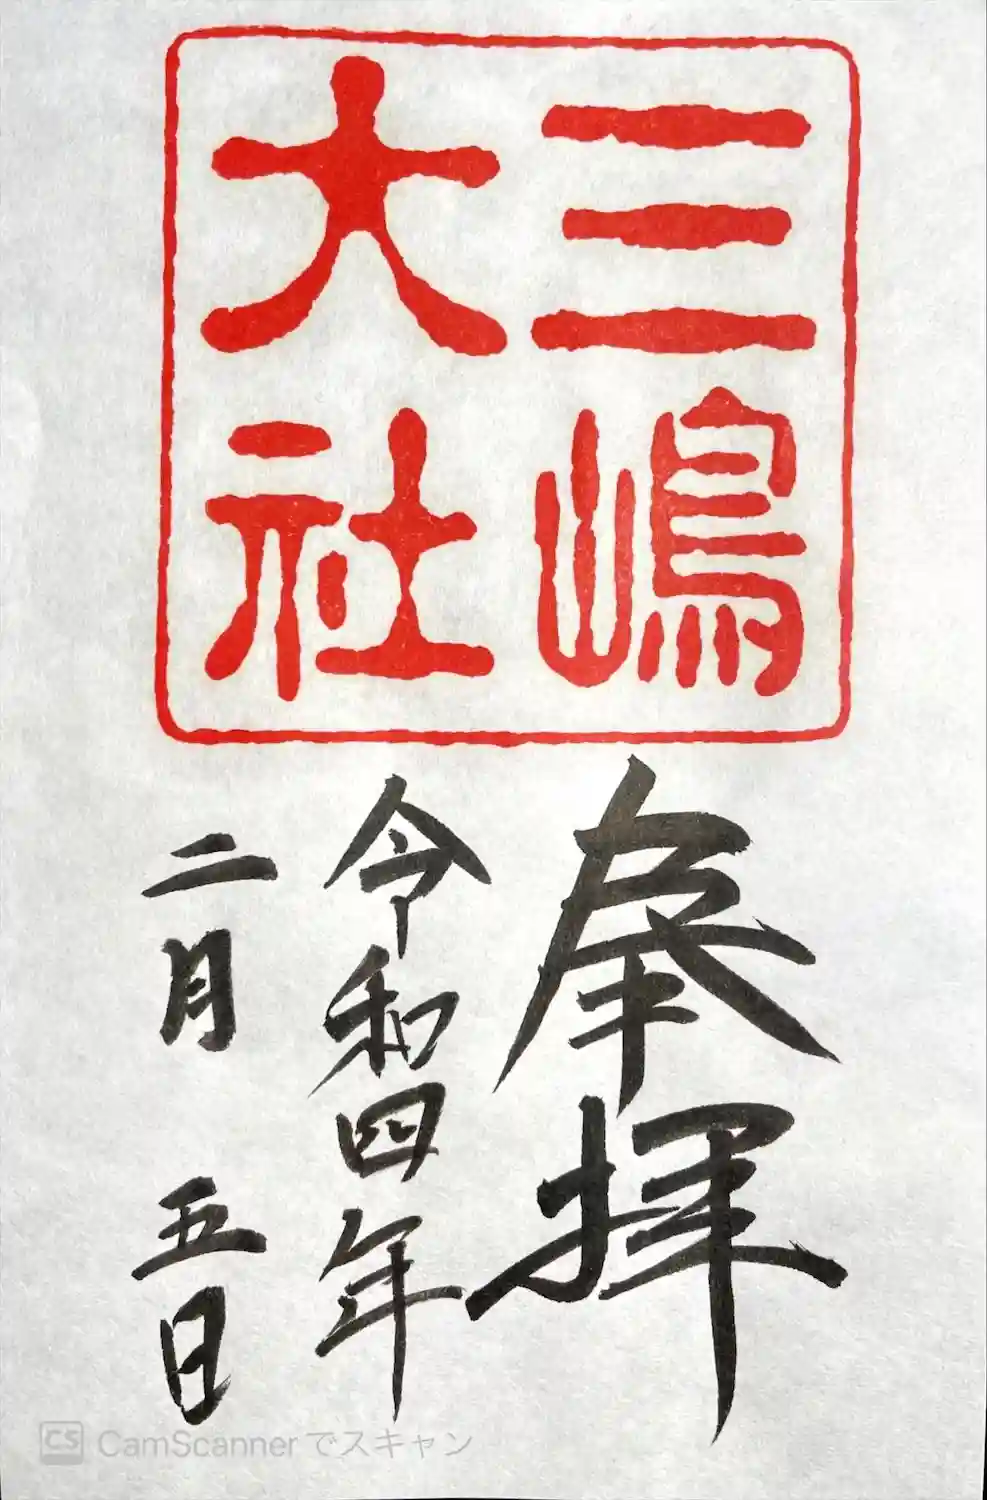 三嶋
大社
奉拝
令和四年
二月 五日
CS CamScannerでスキャン